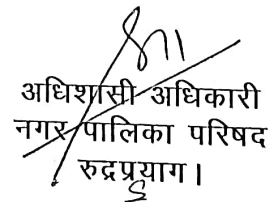 अधिशासी अधिकारी
नगर पालिका परिषद
रुद्रप्रयाग।